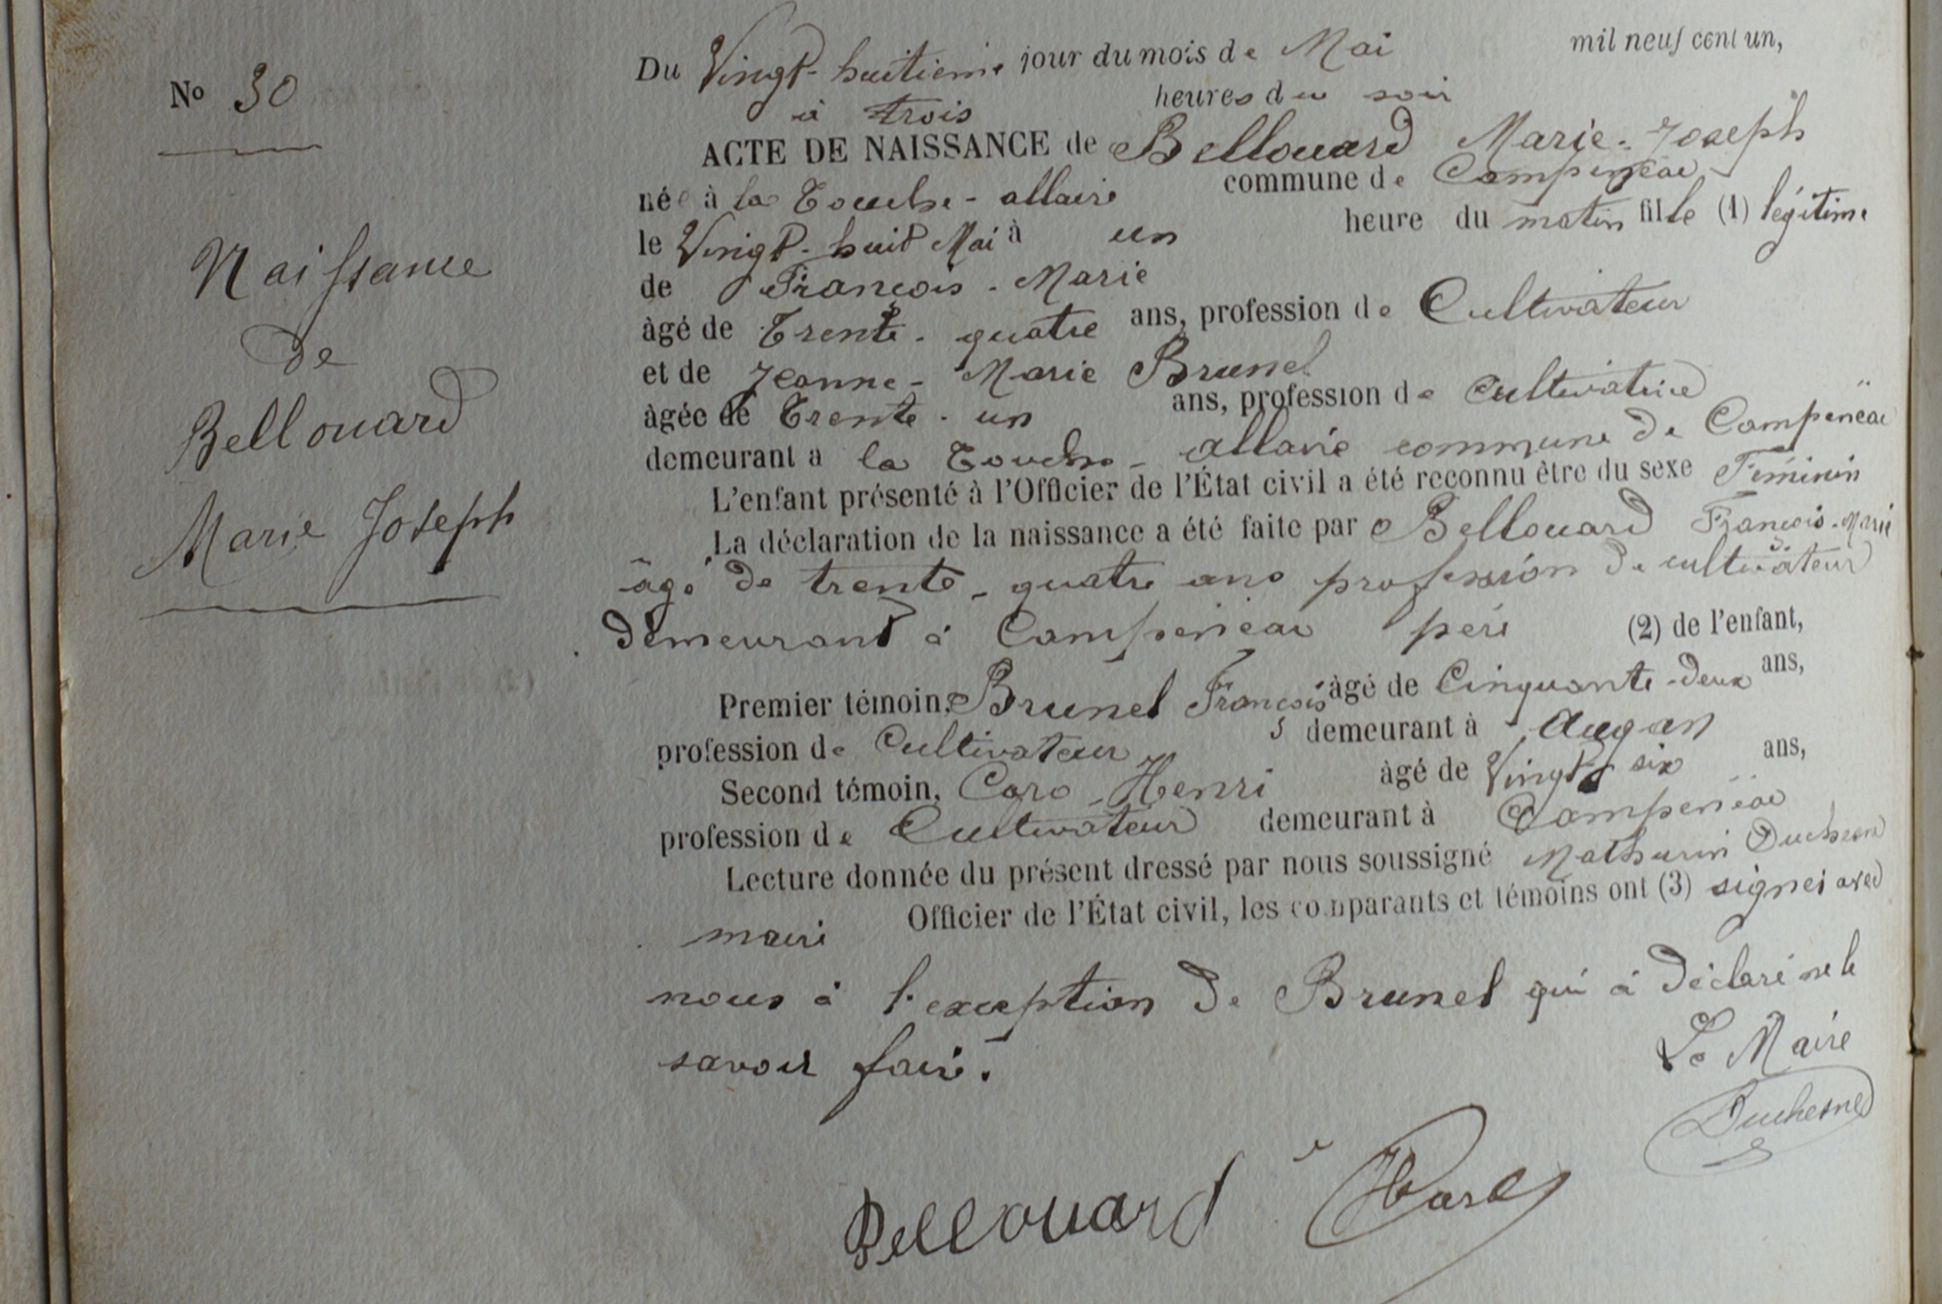 No 30
Naissance
de
Bellouard
Marie Joseph
Du Vingt-huitieme jour du mois de Mai mil neuf cent un,
à trois heures du soir
ACTE DE NAISSANCE de Bellouard Marie-Joseph
née à la Touche-allaire commune de Campénéac
le Vingt-huit Mai à un heure du matin fille (1) légitime
de François-Marie
âgé de Trente-quatre ans, profession de Cultivateur
et de Jeanne-Marie Brunel
âgée de Trente-un ans, profession de Cultivatrice
demeurant a la Touche-allaire commune de Campénéac
L'enfant présenté à l'Officier de l'État civil a été reconnu être du sexe Féminin
La déclaration de la naissance a été faite par Bellouard François-Marie
âgé de trente-quatre ans profession de cultivateur
demeurant à Campénéac père (2) de l'enfant,
Premier témoin, Brunel François âgé de Cinquante-deux ans,
profession de Cultivateur demeurant à Augan
Second témoin, Caro Henri âgé de Vingt six ans,
profession de Cultivateur demeurant à Campénéac
Lecture donnée du présent dressé par nous soussigné Mathurin Duchesne
maire Officier de l'État civil, les comparants et témoins ont (3) signés avec
nous à l'exception de Brunel qui à déclaré ne le
savoir faire.
Le Maire
Duchesne
Bellouard